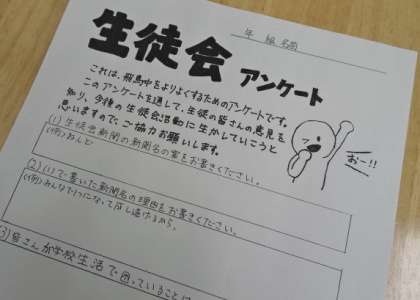 年 組 名前
生徒会 アンケート
これは、飛鳥中をよりよくするためのアンケートです。
このアンケートを通して、生徒の皆さんの意見を
知り、今後の生徒会活動に生かしていこうと
思いますので、ご協力お願いします。
おー!!
(1) 生徒会新聞の新聞名の案をお書きください。
(例)
(2) (1)で書いた新聞名の理由をお書きください。
(例)みんなで1つになって成し遂げるから。
(3) 皆さんが学校生活で困っていること